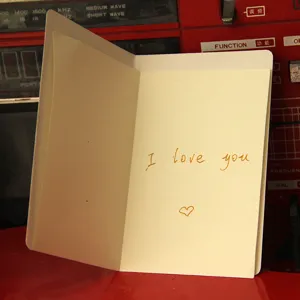 MEDIUM WAVE
SHORT WAVE
FUNCTION
I love you